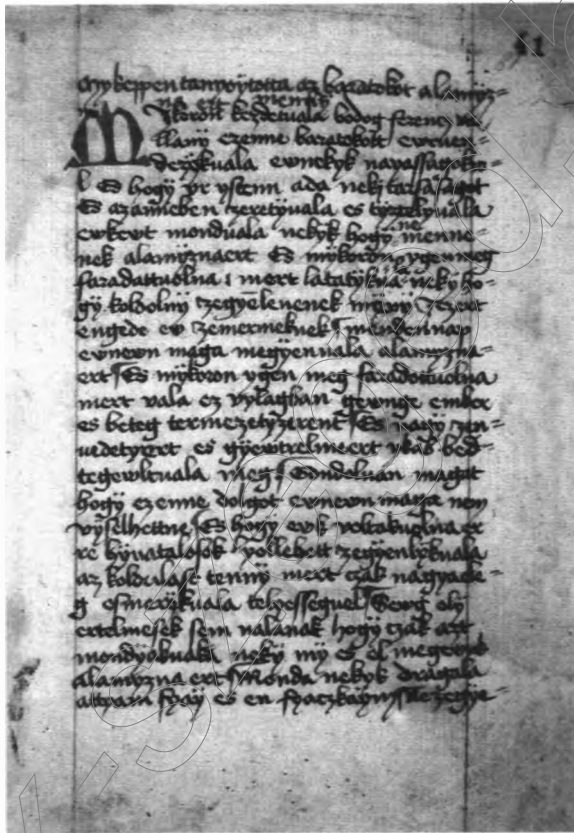 mykeppen tanoytotta az baratokot alamyz=
na ert menny
Mykoron kezdetuala bodog ferenc va
llany ezenne baratokott ewruen=
dezykuala ewnekyk
l Es hogy vr ysten ada nekj tarsasagot
Es azanneben zeretyuala es tyztelyuala
ewkewt monduala nekyk hogy ne menne=
nek alamyznaert Es mykoron ygen meg
faradattuolna mert neky ho=
gy koldolny zegyelenenek ezert
engede ew zemermeknek mendennap
ewnewn maga megyenuala alamyzna=
ert Es mykoron ygen meg faradottuolna
mert vala ez vylagban gewnge ember
es beteg termezetyzerent Es nagy zen=
uedetyert es gyewtrelmeert bed=
tegewltuala meg Gondoluan magat
hogy ezenne dolgot ewnewn maga nem
vyselhettne Es hogy ewk voltakuolna er
re hyuatalosok zegyenlykuala
az koldulast tenny mert czak nagyade=
g esmerykuala telyesseguel Sewt oly
ertelmesek sem valanak hogy czak azt
mondyakuala neky my es el megewnk
alamyzna ert Monda nekyk dragala
attyam fyay es en fyaczkaym Ne zegye=